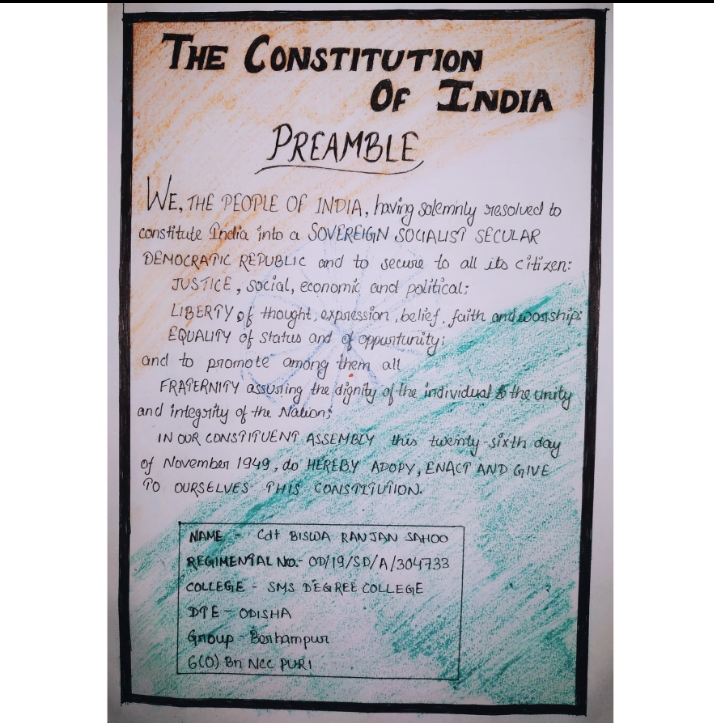 THE CONSTITUTION
OF INDIA
PREAMBLE
WE, THE PEOPLE OF INDIA, having solemnly resolved to
constitute India into a SOVEREIGN SOCIALIST SECULAR
DEMOCRATIC REPUBLIC and to secure to all its citizen:
JUSTICE, social, economic and political;
LIBERTY of thought, expression, belief, faith and worship;
EQUALITY of status and of opportunity;
and to promote among them all
FRATERNITY assuring the dignity of the individual & the unity
and integrity of the Nation;
IN OUR CONSTITUENT ASSEMBLY this twenty-sixth day
of November 1949, do HEREBY ADOPT, ENACT AND GIVE
TO OURSELVES THIS CONSTITUTION.
NAME - Cdt BISWA RANJAN SAHOO
REGIMENTAL NO.- OD/19/SD/A/304733
COLLEGE - SMS DEGREE COLLEGE
DTE - ODISHA
Group - Berhampur
6(O) Bn NCC PURI